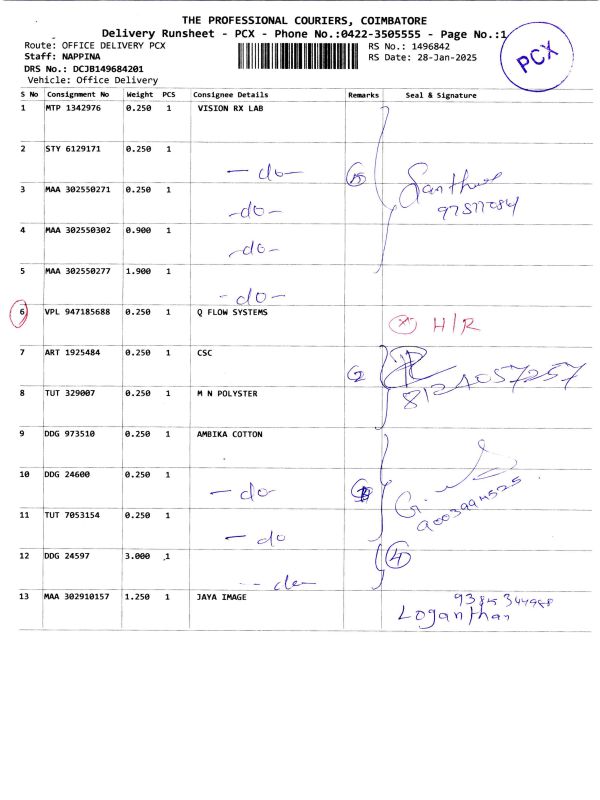 THE PROFESSIONAL COURIERS, COIMBATORE
Delivery Runsheet - PCX - Phone No.:0422-3505555 - Page No.:1
Route: OFFICE DELIVERY PCX
RS No.: 1496842
Staff: NAPPINA
RS Date: 28-Jan-2025
DRS No.: DCJB149684201
Vehicle: Office Delivery
PCX
S No Consignment No Weight PCS Consignee Details Remarks Seal & Signature
1 MTP 1342976 0.250 1 VISION RX LAB
2 STY 6129171 0.250 1
- do -
3 MAA 302550271 0.250 1
- do -
4 MAA 302550302 0.900 1
- do -
5 MAA 302550277 1.900 1
- do -
6 VPL 947185688 0.250 1 Q FLOW SYSTEMS
H/R
7 ART 1925484 0.250 1 CSC
2
8124057257
8 TUT 329007 0.250 1 M N POLYSTER
9 DDG 973510 0.250 1 AMBIKA COTTON
10 DDG 24600 0.250 1
- do
11 TUT 7053154 0.250 1
- do
12 DDG 24597 3.000 1
4
13 MAA 302910157 1.250 1 JAYA IMAGE
Loganthan